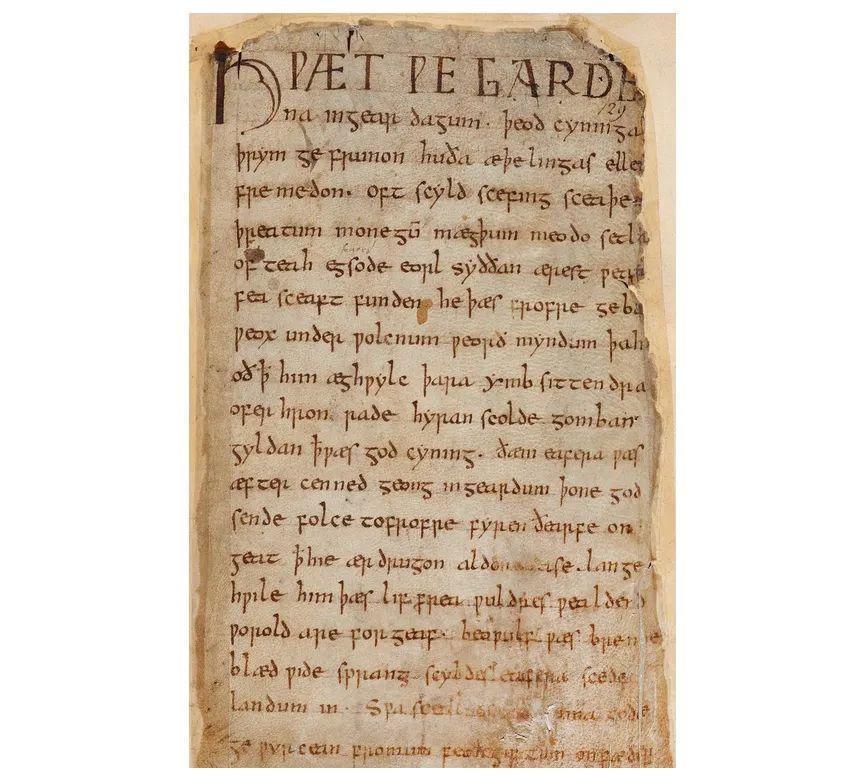 HǷÆT ǷE GARDE
129
na ingear dagum. þeod cyninga
þrym ge frunon huða æþelingas elle
fremedon. oft scyld scefing sceaþe
þreatum monegū mægþum meodo setla
of teah egsode eorl syððan ærest ƿear
fea sceaft funden he þæs frofre geba
ƿeox under ƿolcnum ƿeorð myndum þah
oð ꝥ him æghƿylc þara ymb sittendra
ofer hron rade hyran scolde gomban
gyldan ꝥ ƿæs god cyning. ðæm eafera ƿæs
æfter cenned geong ingeardum þone god
sende folce tofrofre fyren ðearfe on
geat ꝥ hie ær drugon lange
hƿile him þæs lif frea ƿuldres ƿealdend
ƿorold are for geaf. beoƿulf ƿæs breme
blæd ƿide sprang scyldes eafera scede
landum in. Sƿa gode
ge ƿyrcean fromum feoh giftum